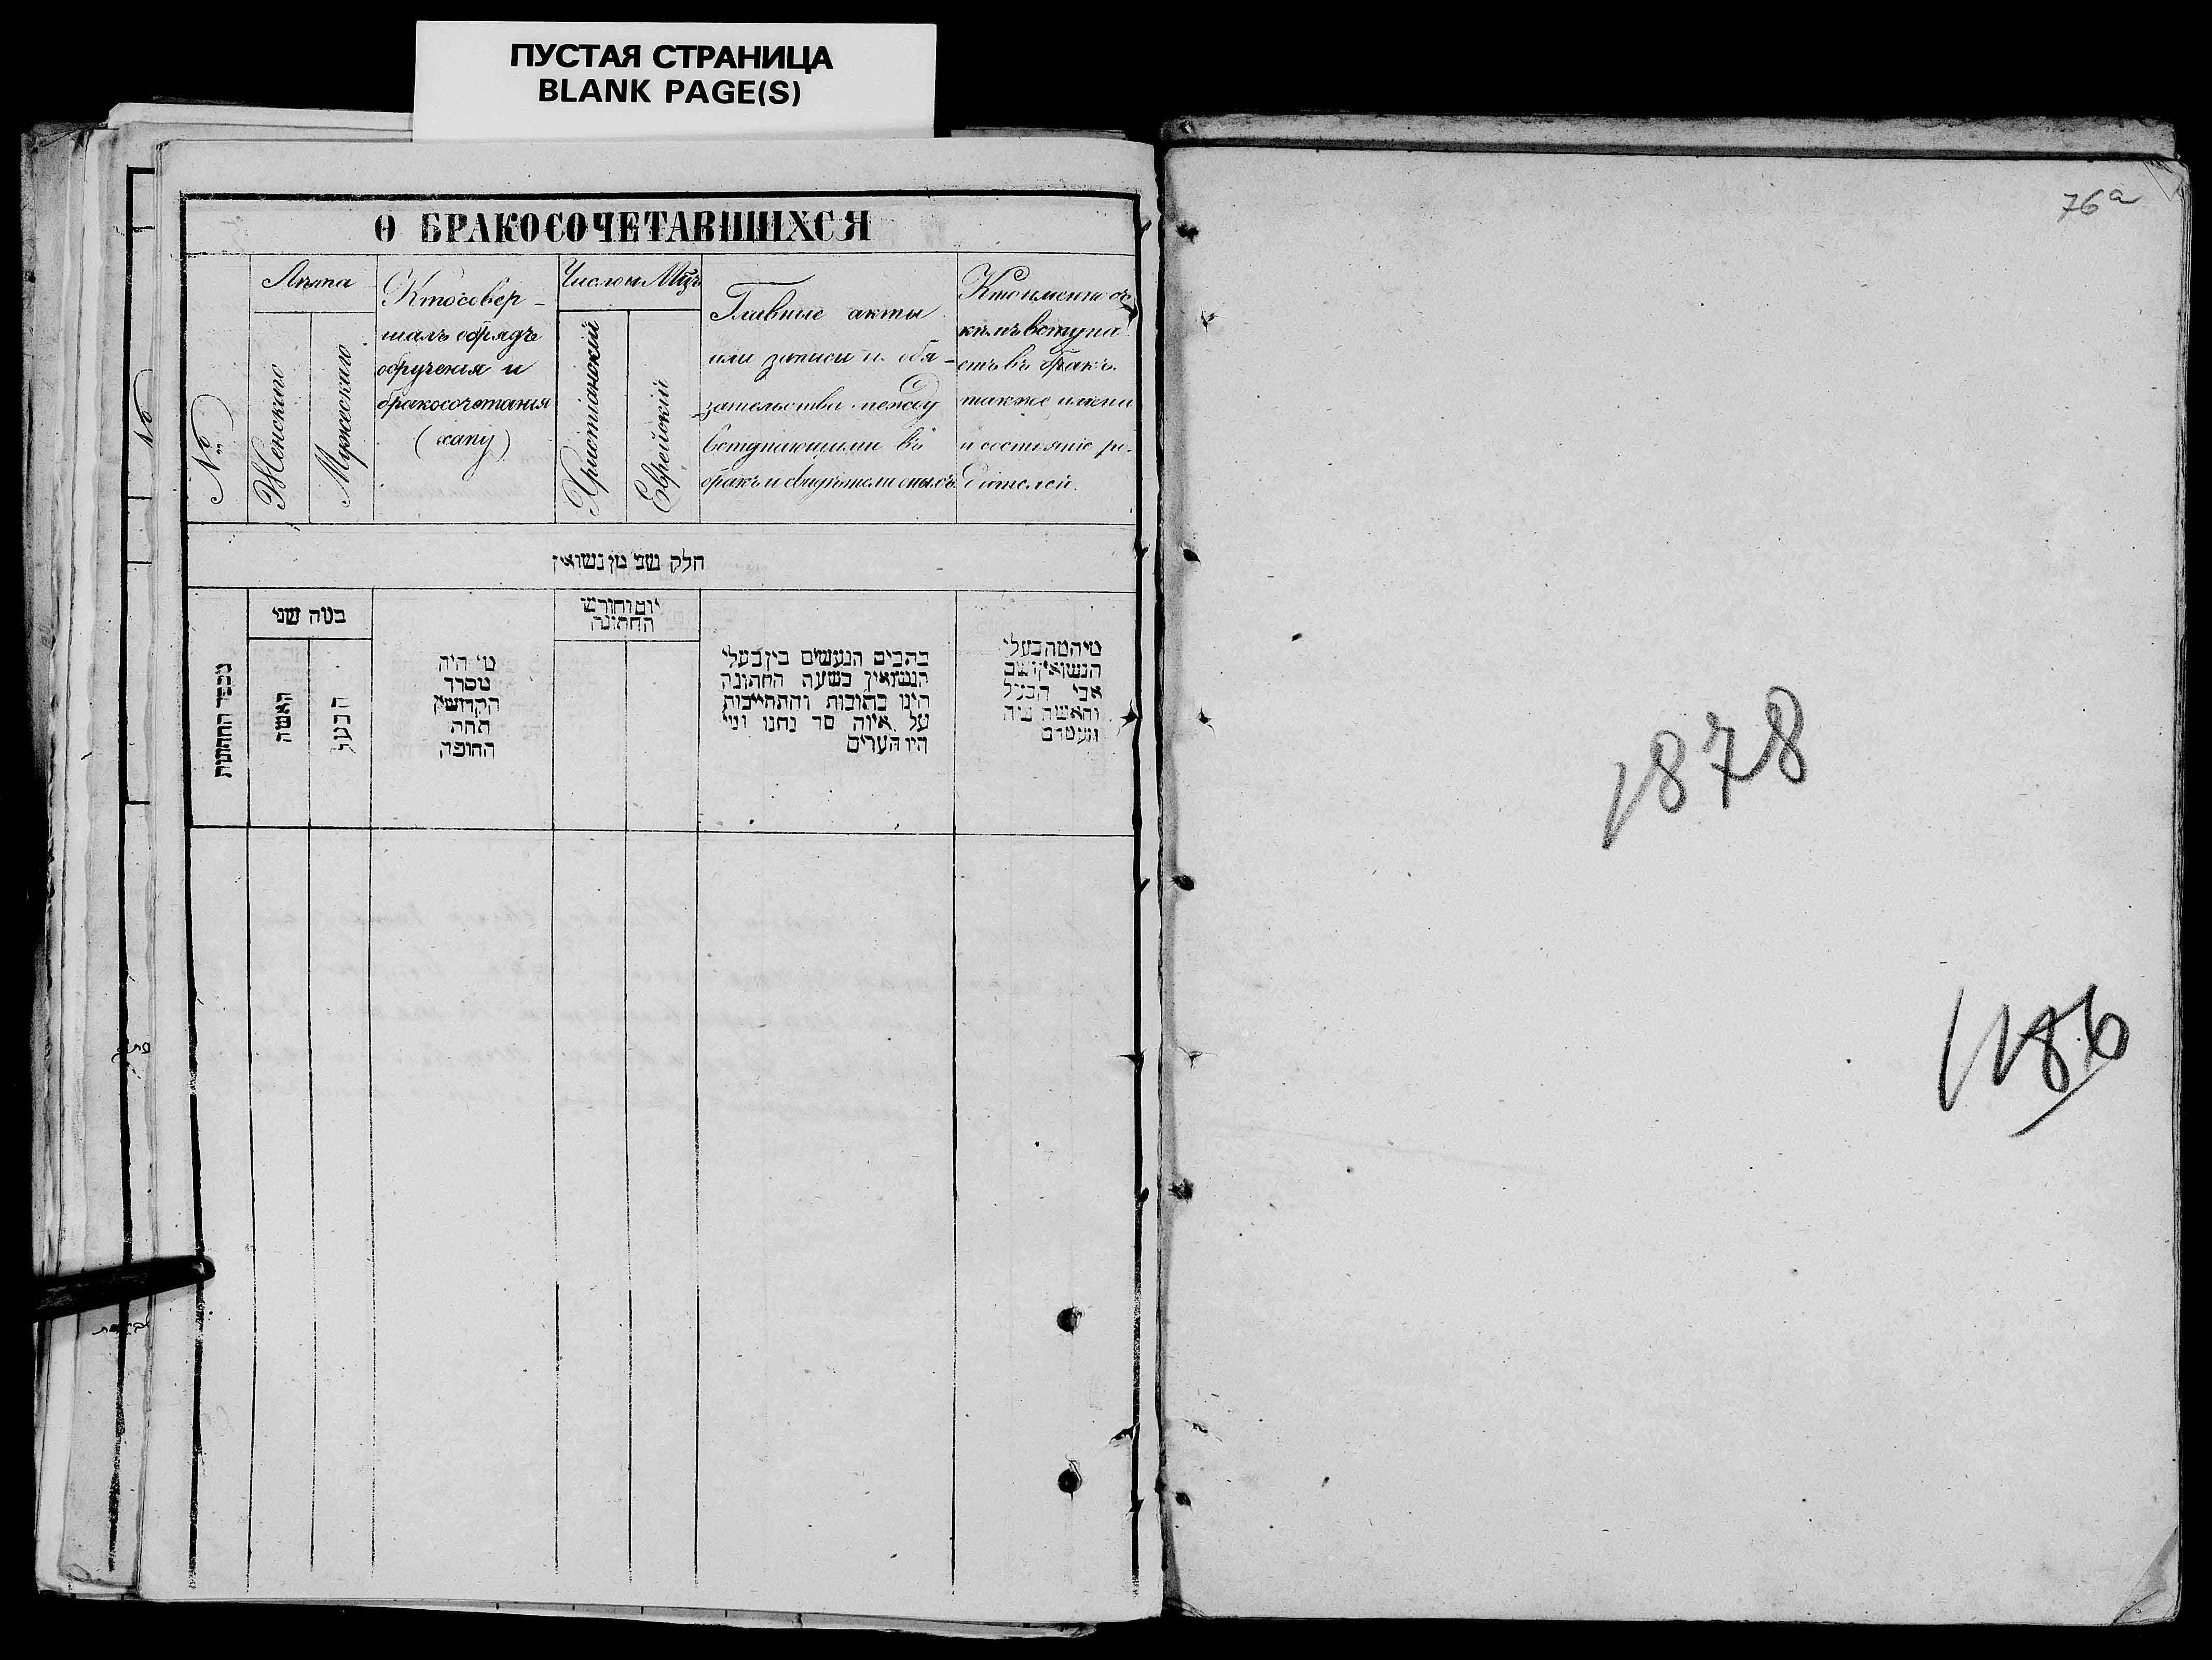 ПУСТАЯ СТРАНИЦА
BLANK PAGE(S)
О БРАКОСОЧЕТАВШИХСЯ
№
Лѣта
Женскаго
Мужескаго
Кто совер-
шалъ обрядъ
обрученія и
бракосочетанія
(хапу)
Число и Мцъ
Христіанскій
Еврейскій
Главные акты
или записи и обя-
зательства между
вступающими въ
бракъ и свидѣтели оныхъ
Кто именно съ
кѣмъ вступа
етъ въ бракъ.
также имена
и состояніе ро-
дителей.
חלק שני מן נשואין
מספר החתונות
במה שני
האשה
הבעל
מי היה
מסדר
הקדושין
תחת
החופה
יום וחודש
החתונה
כתבים הנעשים בין בעלי
הנשואין בשעת החתונה
היינו כתובות והתחייבות
על איזה סך נתנו ומי
היו העדים
מי המה בעלי
הנשואין ושם
אבי הבעל
והאשה
76а
1878
1186
№